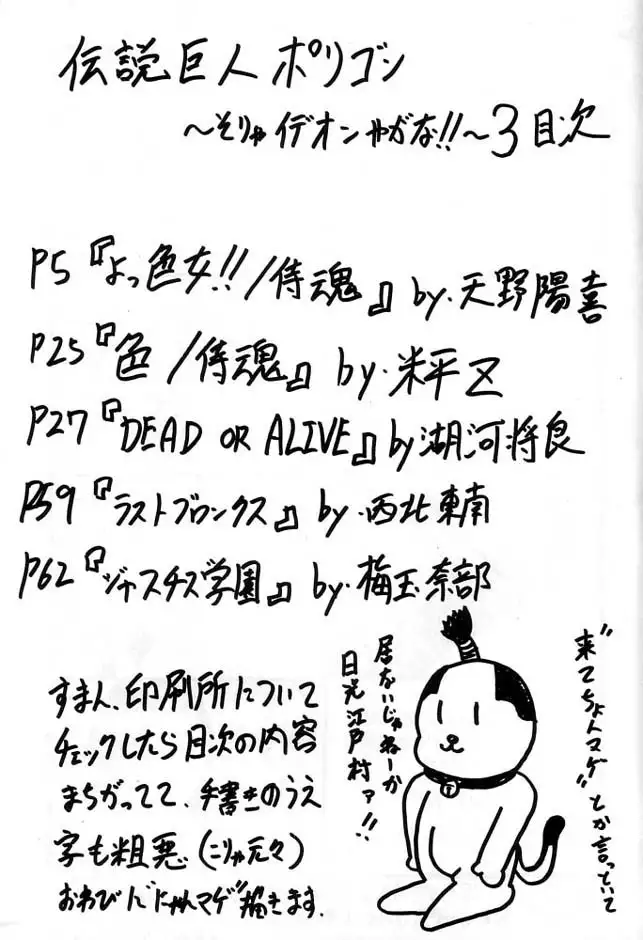 伝説巨人ポリゴン
〜そりゃイデオンやがな!!〜3目次
P5『よっ色女!!/侍魂』by.天野陽喜
P25『色/侍魂』by.米平区
P27『DEAD OR ALIVE』by湖河将良
P59『ラストブロンクス』by.西北東南
P62『ジャスチス学園』by.梅玉奈部
すまん、印刷所について
チェックしたら目次の内容
まちがってて、手書きのうえ
字も粗悪(こりゃ元々)
おわびに"にゃんマゲ"描きます.
"来てちょんマゲ"とか言っていて
居ないじゃねーか
日光江戸村ァ!!